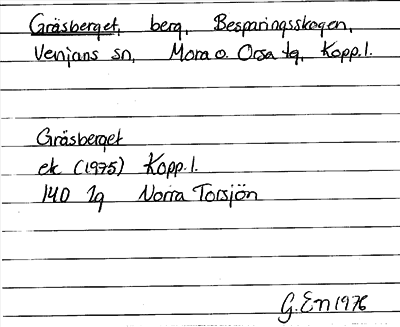 Gräsberget, berg, Besparingsskogen,
Venjans sn, Mora o. Orsa tg, Kopp. l.
Gräsberget
ek (1975) Kopp. l.
14D 2g Norra Torsjön
G. En 1976